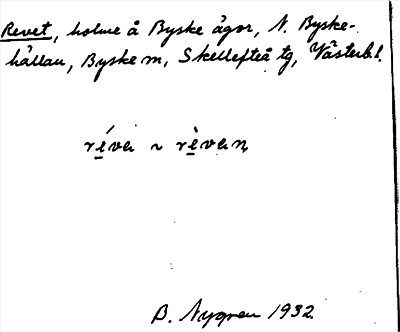 Revet, holme å Byske ägor, N. Byske-
hållan, Byske m, Skellefteå tg, Västerb. l.
ré̲va ~ rè̲van
B. Nygren 1932